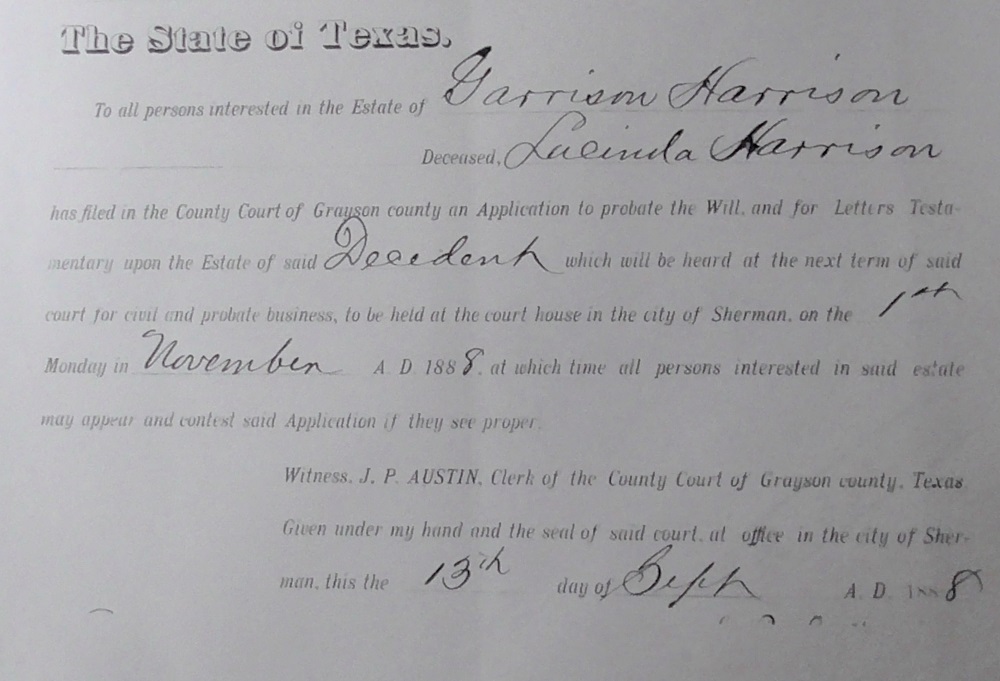 The State of Texas.
To all persons interested in the Estate of Garrison Harrison
Deceased, Lucinda Harrison
has filed in the County Court of Grayson county an Application to probate the Will, and for Letters Testa-
mentary upon the Estate of said Decedent which will be heard at the next term of said
court for civil and probate business, to be held at the court house in the city of Sherman, on the 1st
Monday in November A. D. 1888, at which time all persons interested in said estate
may appear and contest said Application if they see proper.
Witness, J. P. AUSTIN, Clerk of the County Court of Grayson county, Texas
Given under my hand and the seal of said court, at office in the city of Sher-
man, this the 13th day of Sept A. D. 1888